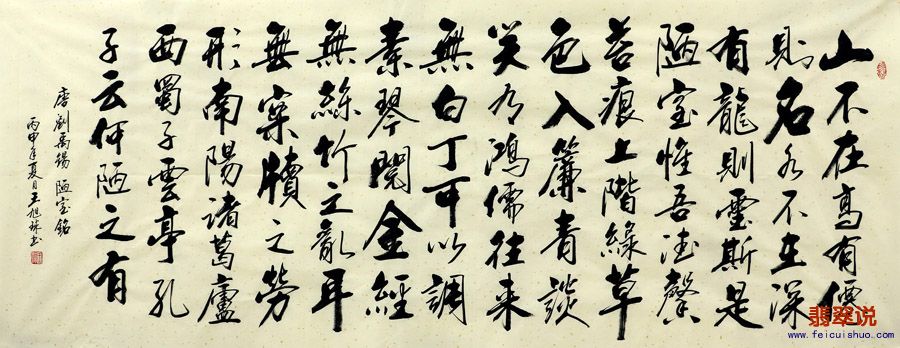 山不在高有僊
則名水不在深
有龍則靈斯是
陋室惟吾德馨
苔痕上階綠草
色入簾青談
笑有鴻儒往来
無白丁可以調
素琴閱金經
無絲竹之亂耳
無案牘之勞
形南陽諸葛廬
西蜀子雲亭孔
子云何陋之有
唐劉禹錫 陋室銘
丙申年夏日王旭书
翡翠说
www.feicuishuo.com